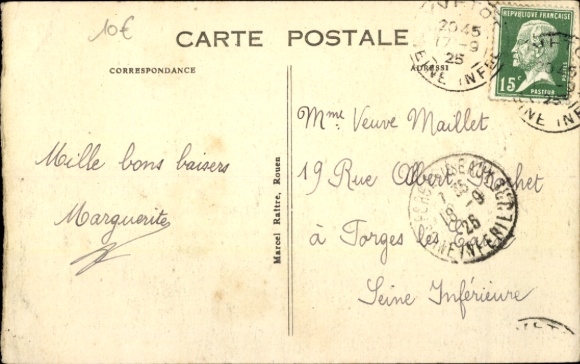 10€
CARTE POSTALE
CORRESPONDANCE
ADRESSE
RÉPUBLIQUE FRANÇAISE
15c
POSTES
PASTEUR
YVETOT
20 45
17-9
25
SEINE INFRE
Mme Veuve Maillet
19 Rue Albert Bochet
à Forges les Eaux
Seine Inférieure
Mille bons baisers
Marguerite
Marcel Raitre, Rouen
FORGES-LES-EAUX
18-9
SEINE INFERIEURE